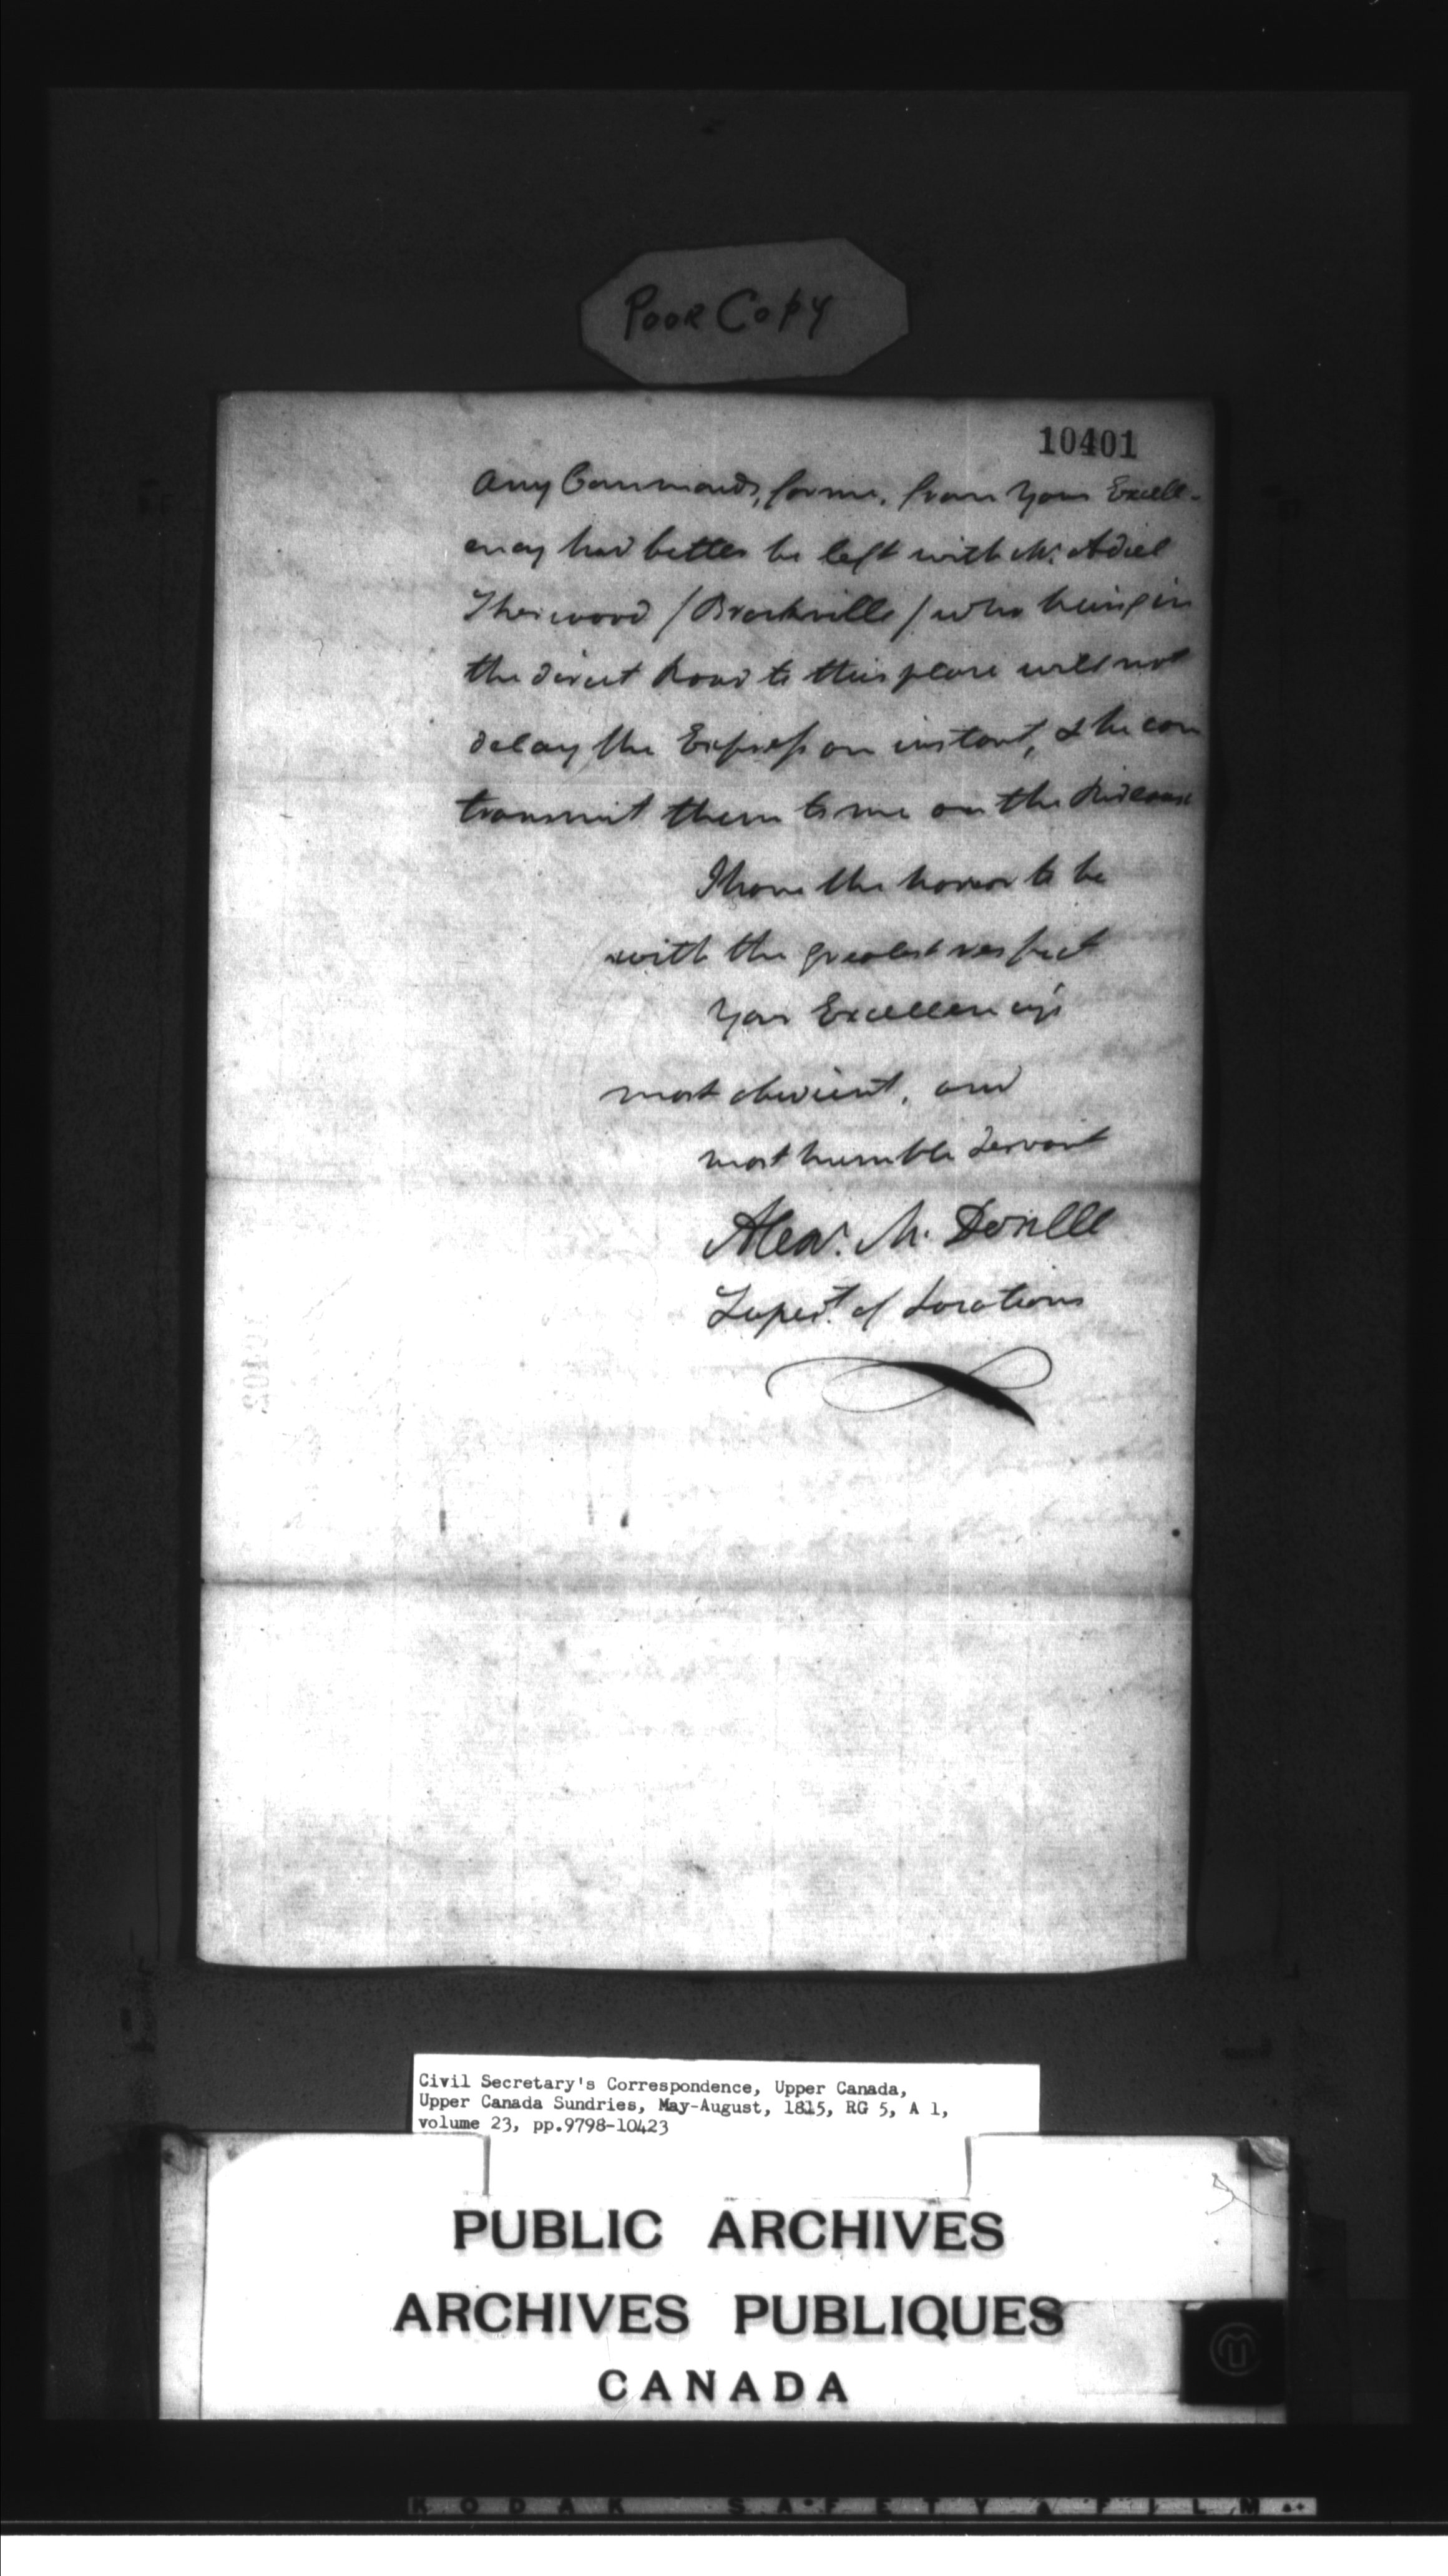 Poor Copy
10401
Any Commands, for me, from Your Excell-
ency had better be left with Mr. Adiel
Sherwood / Brockville / who being in
the direct Road to this place will not
delay the Express an instant, & he can
transmit them to me on the Rideau
I have the honor to be
with the greatest respect
Your Excellency's
most obedient, and
most humble Servant
Alexr. Mc Donell
Supert. of Locations
Civil Secretary's Correspondence, Upper Canada,
Upper Canada Sundries, May-August, 1815, RG 5, A 1,
volume 23, pp.9798-10423
PUBLIC ARCHIVES
ARCHIVES PUBLIQUES
CANADA
KODAK SAFETY FILM